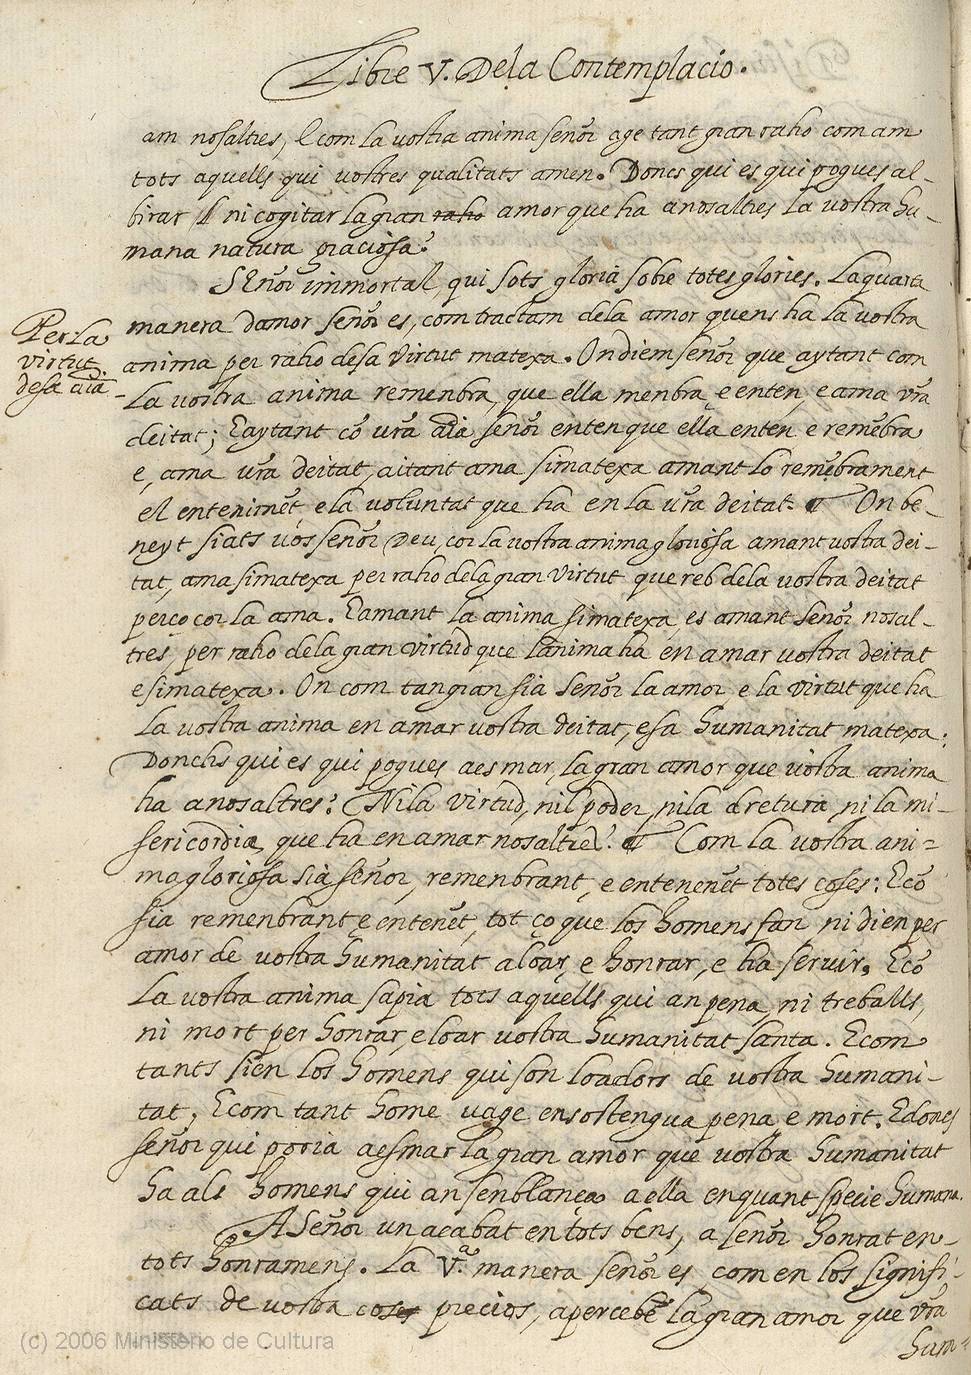 Libre V. Dela Contemplacio.
am nosaltres, e com la vostra anima señor age tant gran raho com am
tots aquells qui vostres qualitats amen. Doncs qui es qui pogues al-
birar ni cogitar la gran raho amor que ha a nosaltres la vostra hu-
mana natura graciosa?
Señor immortal, qui sots gloria sobre totes glories. La quarta
manera damor señor es, com tractam dela amor quens ha la vostra
Per la
virtut
desa aīa
anima per raho desa virtut matexa. On diem señor que aytant com
la vostra anima remenbra, que ella menbra, e enten, e ama vr̃a
deitat; E aytant cō vr̃a aīa señor enten que ella enten e remēbra
e, ama vr̃a deitat, aitant ama simatexa amant lo remēbrament
el entenimēt, e la voluntat que ha en la vr̃a deitat. On be-
neyt siats vos señor Deu, cor la vostra anima gloriosa amant vostra dei-
tat, ama simatexa per raho dela gran virtut que reb dela vostra deitat
perço cor la ama. E amant la anima simatexa, es amant señor nosal-
tres, per raho dela gran virtud que lanima ha en amar vostra deitat
e simatexa. On com tan gran sia señor la amor e la virtut que ha
la vostra anima en amar vostra deitat, e sa humanitat matexa:
Donchs qui es qui pogues aesmar, la gran amor que vostra anima
ha a nosaltres? Ni la virtud, nil poder, ni la dretura, ni la mi-
sericordia, que ha en amar nosaltres? Com la vostra ani=
ma gloriosa sia señor, remenbrant, e entenēt totes coses: E cō
sia remenbrant e entenēt, tot ço que los homens fan ni dien per
amor de vostra humanitat a loar, e honrar, e ha servir. E cō
la vostra anima sapia tots aquells qui an pena, ni treballs,
ni mort per honrar, e loar vostra humanitat santa. E com
tants sien los homens qui son loadors de vostra humani-
tat, E com tant home vage en sostengua pena, e mort. E doncs
señor qui poria aesmar la gran amor que vostra humanitat
ha als homens qui an senblança a ella en quant specie humana.
A Señor un acabat en tots bens, a señor honrat en-
tots honramens. La V.ª manera señor es, com en los signifi-
cats de vostra cos precios, apercebē la gran amor que vr̃a
hum=
(c) 2006 Ministerio de Cultura